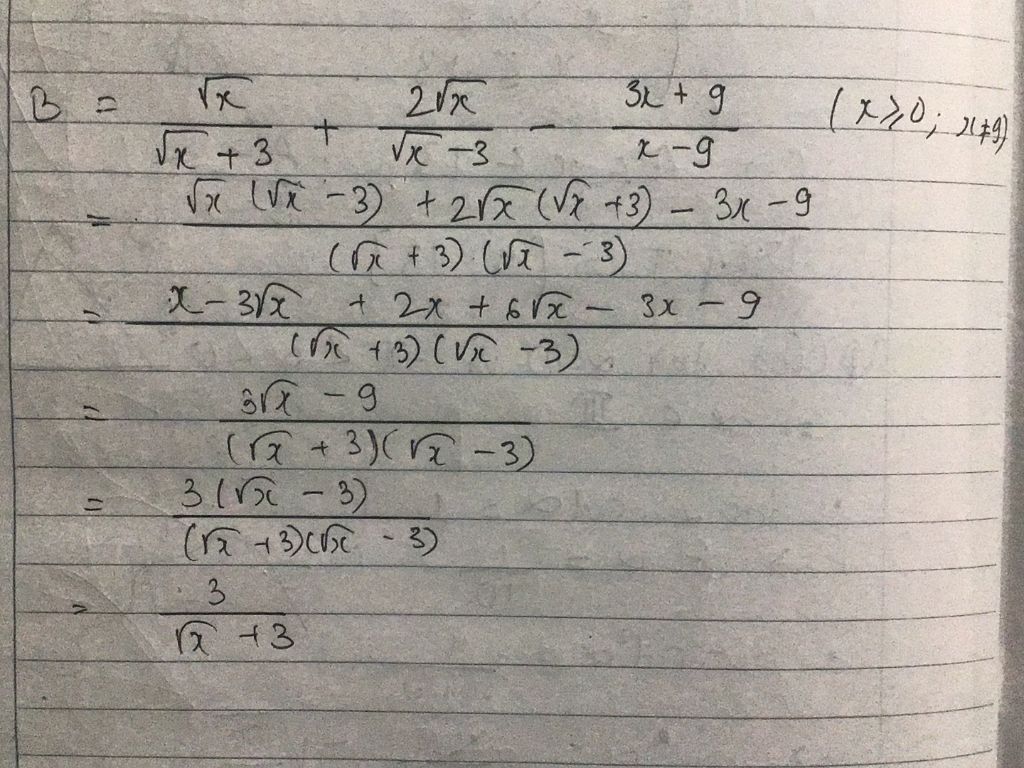 B = √x / (√x + 3) + 2√x / (√x - 3) - (3x + 9) / (x - 9) (x ≥ 0; x ≠ 9)
= (√x (√x - 3) + 2√x (√x + 3) - 3x - 9) / ((√x + 3) (√x - 3))
= (x - 3√x + 2x + 6√x - 3x - 9) / ((√x + 3) (√x - 3))
= (3√x - 9) / ((√x + 3)(√x - 3))
= 3(√x - 3) / ((√x + 3)(√x - 3))
= 3 / (√x + 3)